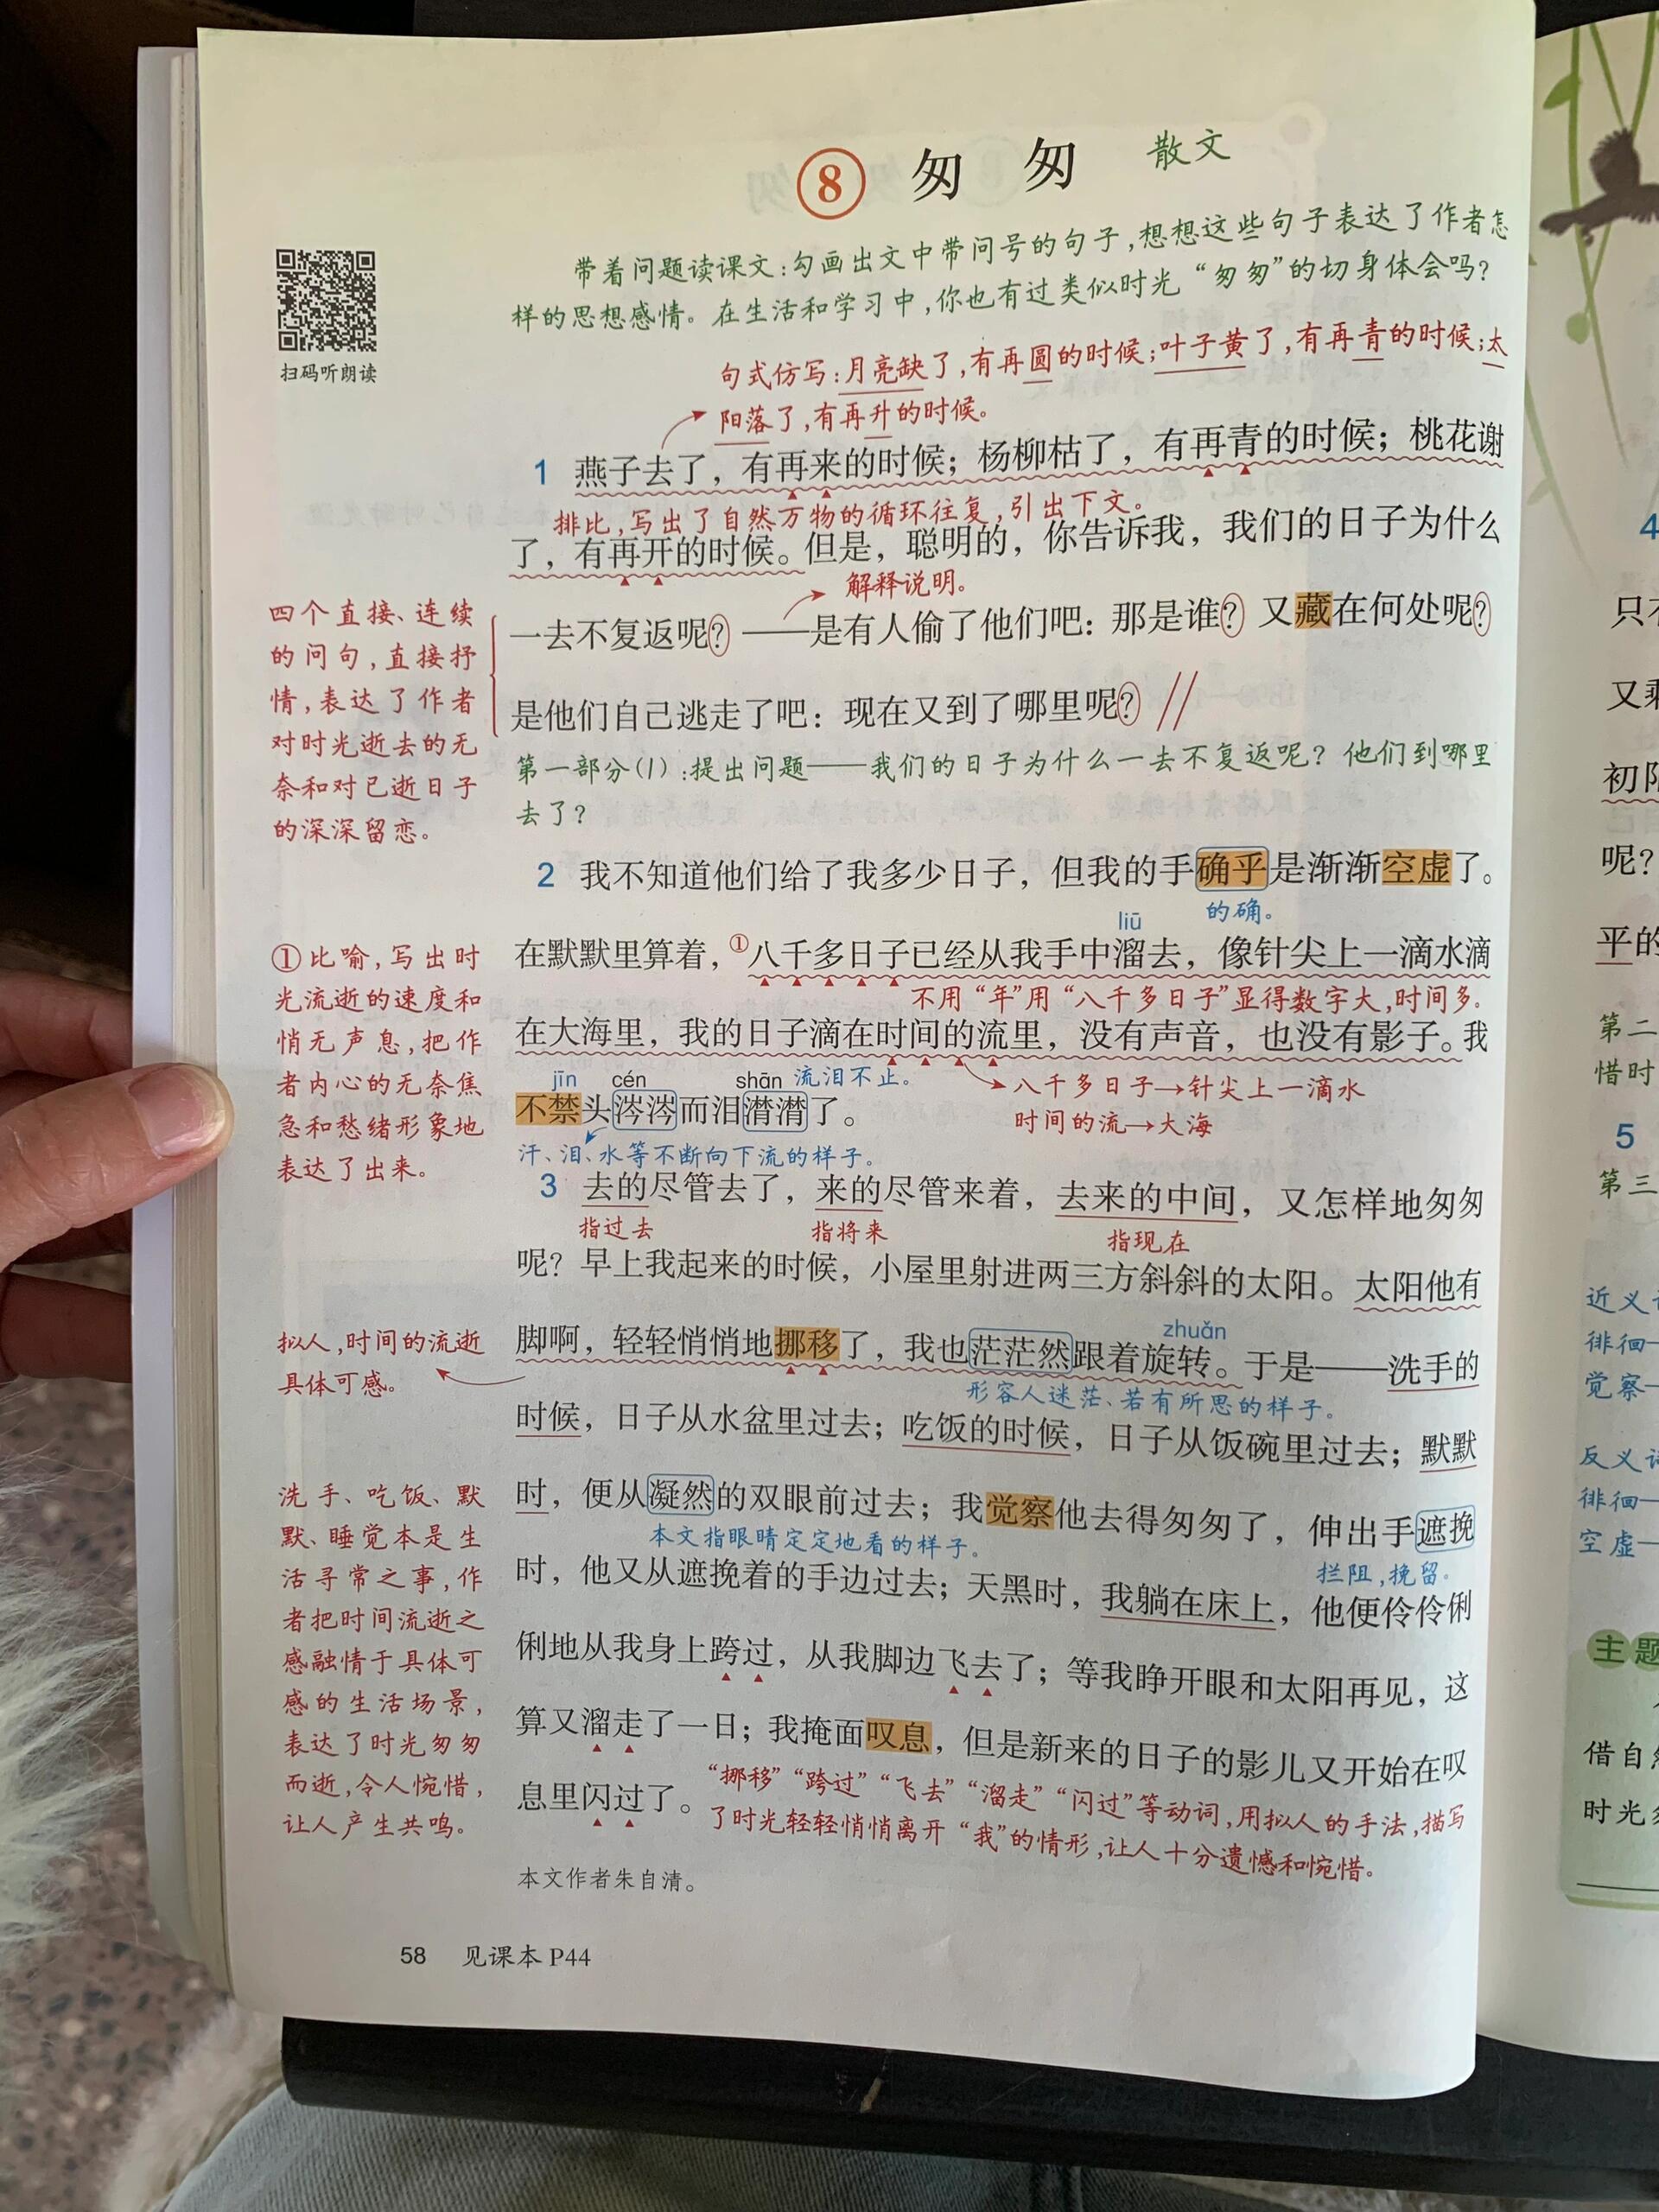 8 匆 匆 散文
带着问题读课文:勾画出文中带问号的句子,想想这些句子表达了作者怎
样的思想感情。在生活和学习中,你也有过类似时光“匆匆”的切身体会吗?
扫码听朗读
句式仿写:月亮缺了,有再圆的时候;叶子黄了,有再青的时候;太
阳落了,有再升的时候。
1 燕子去了，有再来的时候；杨柳枯了，有再青的时候；桃花谢
排比,写出了自然万物的循环往复,引出下文。
了，有再开的时候。但是，聪明的，你告诉我，我们的日子为什么
解释说明。
一去不复返呢？——是有人偷了他们吧：那是谁？又藏在何处呢？
是他们自己逃走了吧：现在又到了哪里呢？
四个直接、连续
的问句,直接抒
情,表达了作者
对时光逝去的无
奈和对已逝日子
的深深留恋。
第一部分(1):提出问题——我们的日子为什么一去不复返呢?他们到哪里
去了?
2 我不知道他们给了我多少日子，但我的手确乎是渐渐空虚了。
的确。
liū
在默默里算着，①八千多日子已经从我手中溜去，像针尖上一滴水滴
不用“年”用“八千多日子”显得数字大,时间多。
在大海里，我的日子滴在时间的流里，没有声音，也没有影子。我
jīn cén shān 流泪不止。
不禁头涔涔而泪潸潸了。
八千多日子→针尖上一滴水
时间的流→大海
汗、泪、水等不断向下流的样子。
①比喻,写出时
光流逝的速度和
悄无声息,把作
者内心的无奈焦
急和愁绪形象地
表达了出来。
3 去的尽管去了，来的尽管来着，去来的中间，又怎样地匆匆
指过去 指将来 指现在
呢？早上我起来的时候，小屋里射进两三方斜斜的太阳。太阳他有
zhuǎn
脚啊，轻轻悄悄地挪移了，我也茫茫然跟着旋转。于是——洗手的
形容人迷茫、若有所思的样子。
拟人,时间的流逝
具体可感。
时候，日子从水盆里过去；吃饭的时候，日子从饭碗里过去；默默
时，便从凝然的双眼前过去；我觉察他去得匆匆了，伸出手遮挽
本文指眼睛定定地看的样子。
拦阻,挽留。
时，他又从遮挽着的手边过去；天黑时，我躺在床上，他便伶伶俐
俐地从我身上跨过，从我脚边飞去了；等我睁开眼和太阳再见，这
算又溜走了一日；我掩面叹息，但是新来的日子的影儿又开始在叹
息里闪过了。
“挪移”“跨过”“飞去”“溜走”“闪过”等动词,用拟人的手法,描写
了时光轻轻悄悄离开“我”的情形,让人十分遗憾和惋惜。
洗手、吃饭、默
默、睡觉本是生
活寻常之事,作
者把时间流逝之
感融情于具体可
感的生活场景,
表达了时光匆匆
而逝,令人惋惜,
让人产生共鸣。
本文作者朱自清。
58 见课本 P44
4
又
呢?
平的
第二
惜时
5
第三
近义
徘徊
觉察
反义
徘徊
空虚
主题
借自
时光